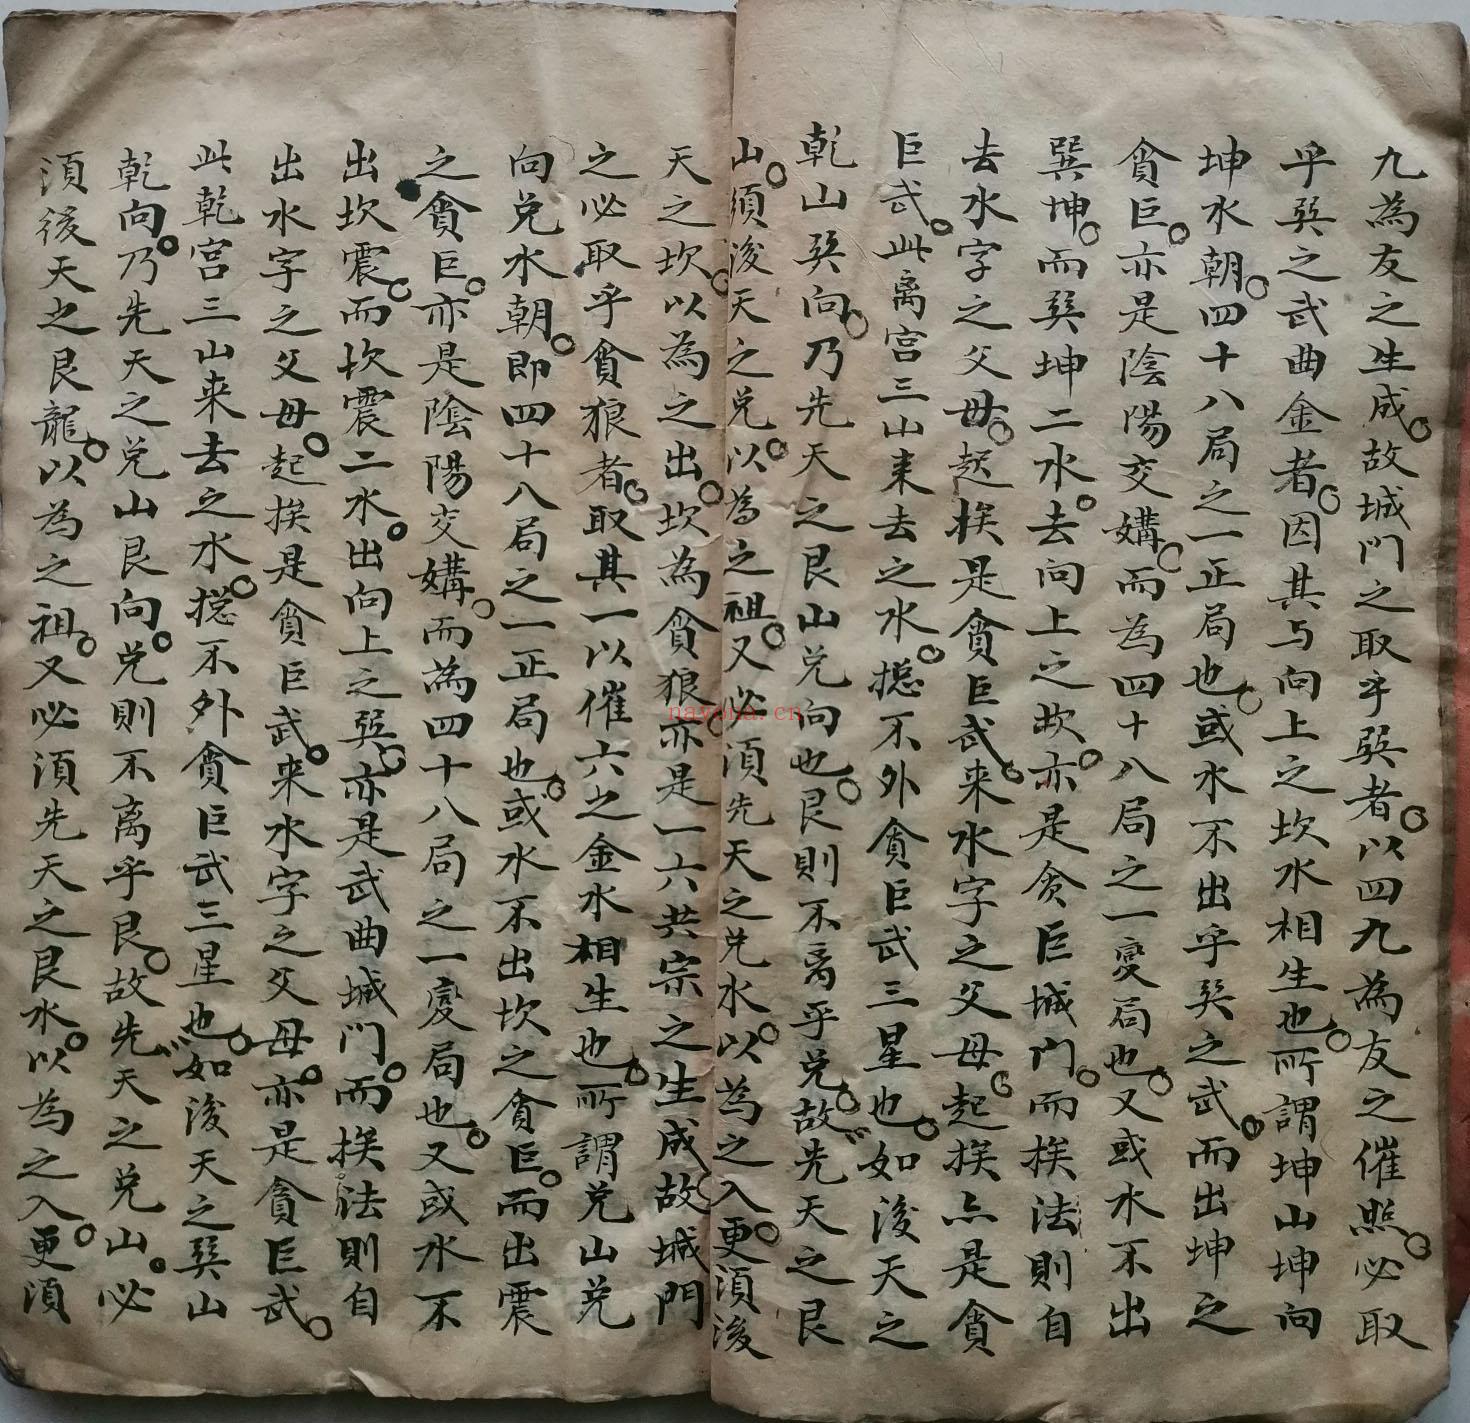 九為友之生成故城門之取乎巽者以四九為友之催照必取
乎巽之武曲金者因其与向上之坎水相生也所謂坤山坤向
坤水朝四十八局之一正局也或水不出乎巽之武而出坤之
貪巨亦是陰陽交媾而為四十八局之一變局也又或水不出
巽坤而巽坤二水去向上之坎亦是贪巨城门而挨法則自
去水字之父母起挨是貪巨武来水字之父母起挨亦是貪
巨武此离宫三山来去之水搃不外貪巨武三星也如後天之
乾山巽向乃先天之艮山兑向也艮則不离乎兑故先天之艮
山須後天之兑以為之祖又必須先天之兑水以為之入更須後
天之坎以為之出坎為貪狼亦是一六共宗之生成故城門
之必取乎貪狼者取其一以催六之金水相生也所謂兑山兑
向兑水朝即四十八局之一正局也或水不出坎之貪巨而出震
之貪巨亦是陰陽交媾而為四十八局之一變局也又或水不
出坎震而坎震二水出向上之巽亦是武曲城门而挨法則自
出水字之父母起挨是貪巨武来水字之父母亦是貪巨武
此乾宫三山来去之水搃不外貪巨武三星也如後天之巽山
乾向乃先天之兑山艮向兑則不离乎艮故先天之兑山必
須後天之艮龍以為之祖又必須先天之艮水以為之入更須
nayona.cn